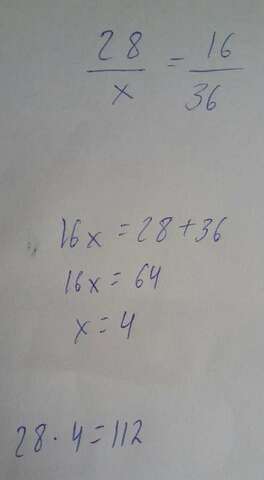 28/x = 16/36
16x = 28 + 36
16x = 64
x = 4
28 · 4 = 112